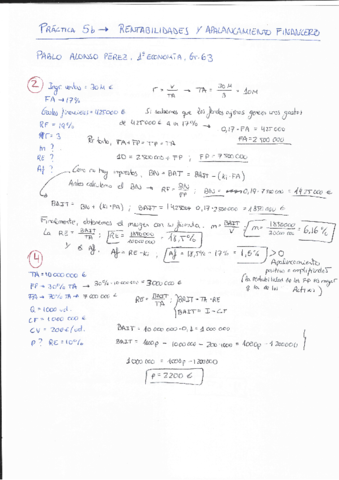 PRÁCTICA 5b → RENTABILIDADES Y APALANCAMIENTO FINANCIERO
PABLO ALONSO PÉREZ, 1º ECONOMÍA, Gr. 63
2 Ingr. ventas = 30M €
r = V/TA → TA = 30M/3 = 10M
FA → 17%
Gastos = 425000 €
Si sabemos que los fondos ajenos generan unos gastos
RF = 19%
de 425000 € a un 17% → 0,17·FA = 425000
r = 3
FA = 2500000
m ?
Por tanto, TA = FP + FA
RE ?
10 = 2500000 + FP; FP = 7500000
Af ?
Como no hay impuestos, BN = BAT = BAIT - (Ki·FA)
Antes calculamos el BN → RF = BN/FP; BN = 0,19·7500000 = 1425000 €
BAIT = BN + (Ki·FA); BAIT = 1425000 + 0,17·2500000 = 1850000 €
Finalmente, obtenemos el margen con la fórmula, m = BAIT/V; m = 1850000/30000000 = 6,16%
La RE = BAIT/TA; RE = 1850000/10000000 = 18,5%
y el Af: Af = RE - Ki; Af = 18,5% - 17% = 1,5% > 0
Apalancamiento
positivo = amplificador
(la rentabilidad de los FP es mayor
que la de los
Activos)
4
TA = 10000000 €
FP = 30% TA → 30%·10000000 = 3000000 €
FA = 70% TA → 7000000 €
RE = BAIT/TA; BAIT = TA·RE
BAIT = I - CT
Q = 1000 ud.
CF = 1000000 €
BAIT = 10000000·0,1 = 1000000
CV = 200€/ud.
P? RE = 10%
BAIT = 1000p - 1000000 - 200·1000 = 1000p - 1200000
1000000 = 1000p - 1200000
p = 2200 €